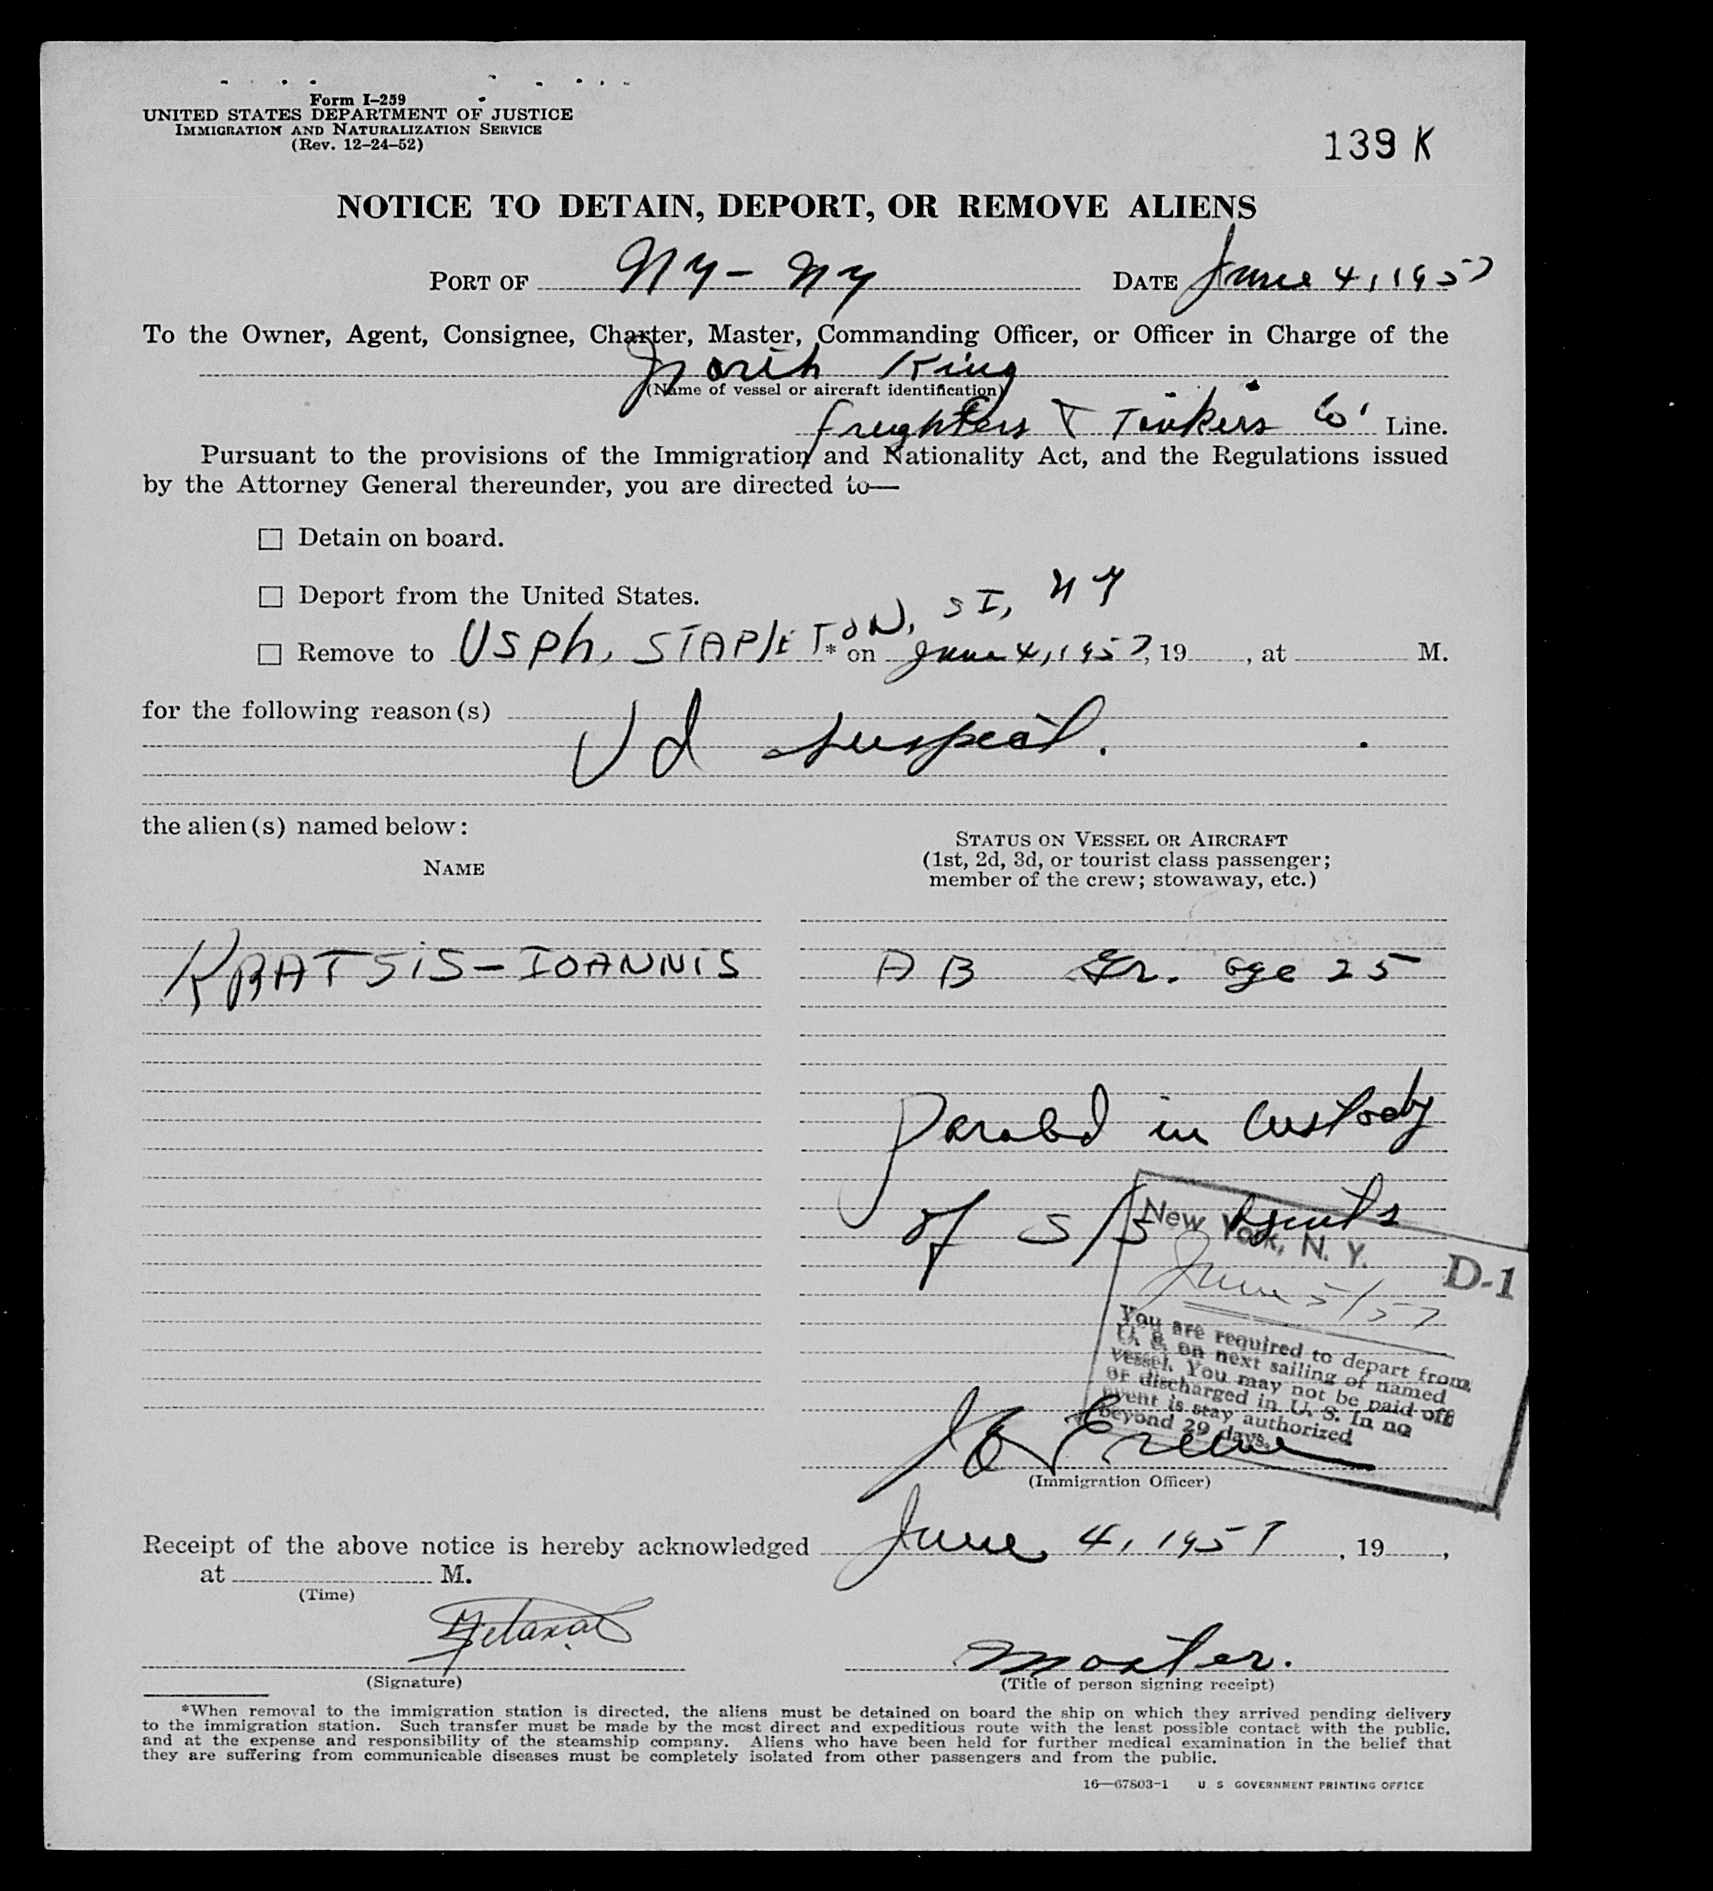 Form I-259
UNITED STATES DEPARTMENT OF JUSTICE
IMMIGRATION AND NATURALIZATION SERVICE
(Rev. 12-24-52)
139 K
NOTICE TO DETAIN, DEPORT, OR REMOVE ALIENS
PORT OF NY - NY DATE June 4, 1957
To the Owner, Agent, Consignee, Charter, Master, Commanding Officer, or Officer in Charge of the
North King
(Name of vessel or aircraft identification)
freighters & Tankers Co' Line.
Pursuant to the provisions of the Immigration and Nationality Act, and the Regulations issued
by the Attorney General thereunder, you are directed to—
☐ Detain on board.
☐ Deport from the United States.
☐ Remove to USPh, STAPLETON, SI, NY * on June 4, 1957, 19 , at M.
for the following reason(s)
Vd suspect.
the alien(s) named below:
NAME
STATUS ON VESSEL OR AIRCRAFT
(1st, 2d, 3d, or tourist class passenger;
member of the crew; stowaway, etc.)
KRATSIS - IOANNIS AB Gr. age 25
Paroled in Custody
of S/S Agents
New York, N. Y.
D-1
June 5/57
You are required to depart from
U. S. on next sailing of named
vessel. You may not be paid off
or discharged in U. S. In no
event is stay authorized
beyond 29 days.
(Immigration Officer)
Receipt of the above notice is hereby acknowledged June 4, 1957, 19 ,
at M.
(Time)
Master.
(Signature) (Title of person signing receipt)
*When removal to the immigration station is directed, the aliens must be detained on board the ship on which they arrived pending delivery
to the immigration station. Such transfer must be made by the most direct and expeditious route with the least possible contact with the public,
and at the expense and responsibility of the steamship company. Aliens who have been held for further medical examination in the belief that
they are suffering from communicable diseases must be completely isolated from other passengers and from the public.
16—67803-1 U. S GOVERNMENT PRINTING OFFICE